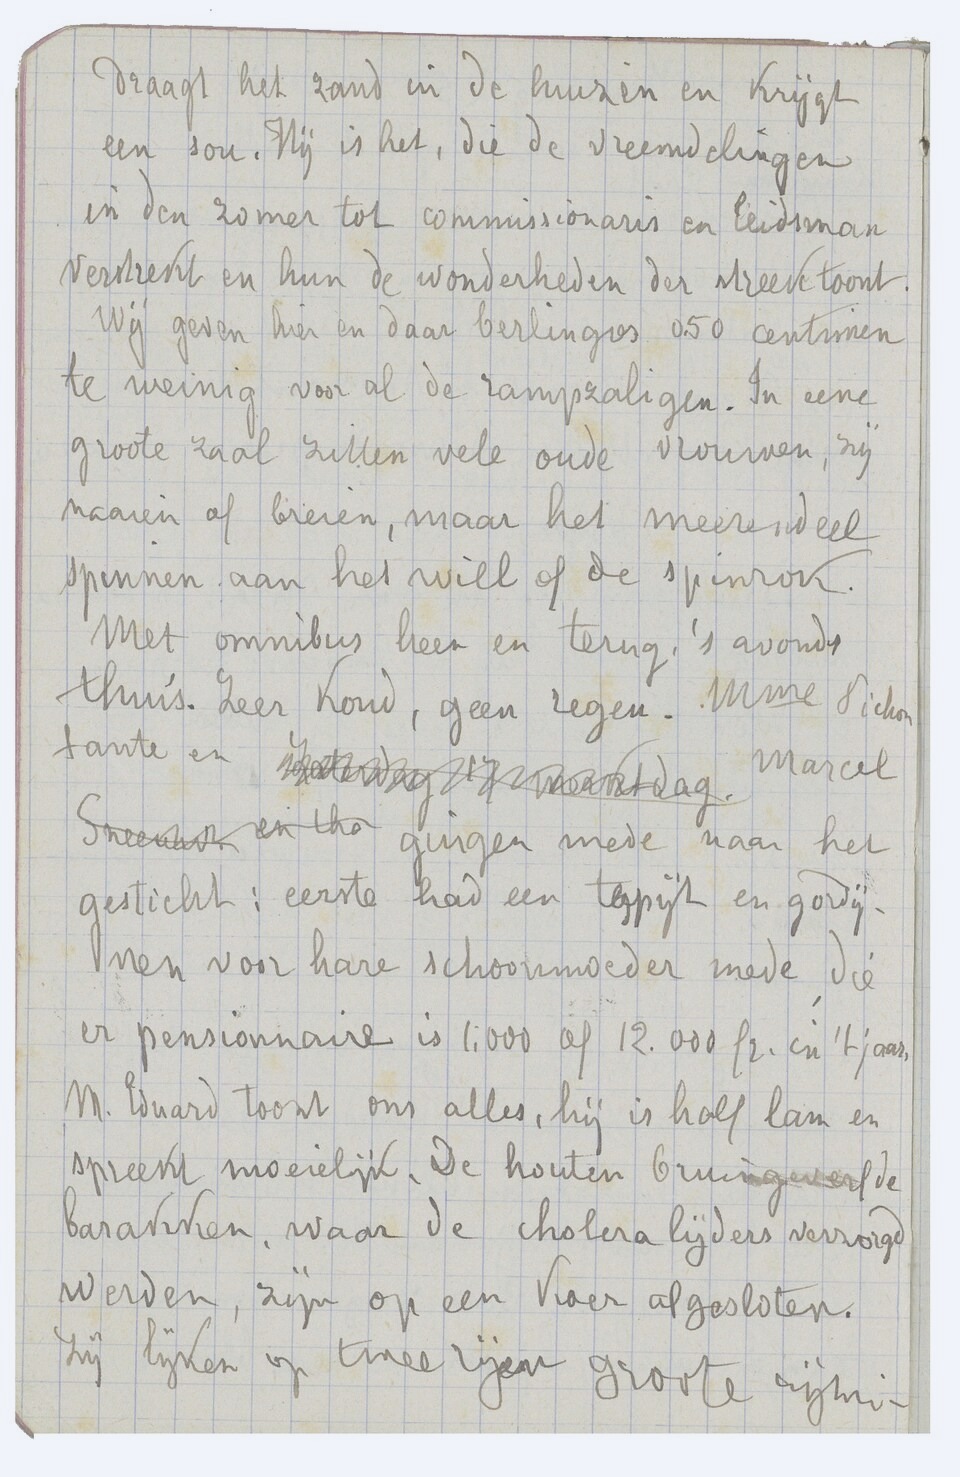 draagt het zand in de huizen en krijgt
een sou. Hij is het, die de vreemdelingen
in den zomer tot commissionaris en leidsman
verstrekt en hun de wonderheden der streek toont.
Wij geven hier en daar berlingos 0.50 centimen
te weinig voor al de rampzaligen. In eene
groote zaal zitten vele oude vrouwen, zij
naaien of breien, maar het meerendeel
spinnen aan het will of de spinrok.
Met omnibus heen en terug, 's avonds
thuis. Zeer koud, geen regen. Mme Pichon
tante en Marcel
gingen mede naar het
gesticht: eerste had een tapijt en gordij-
nen voor hare schoonmoeder mede die
er pensionnaire is 1,000 of 12.000 fr. in 't jaar.
M. Eduard toont ons alles, hij is half lam en
spreekt moeielijk. De houten bruingeverfde
barakken, waar de cholera lijders verzorgd
werden, zijn op een koer afgesloten.
Zij lijken op twee rijen groote rijtui-